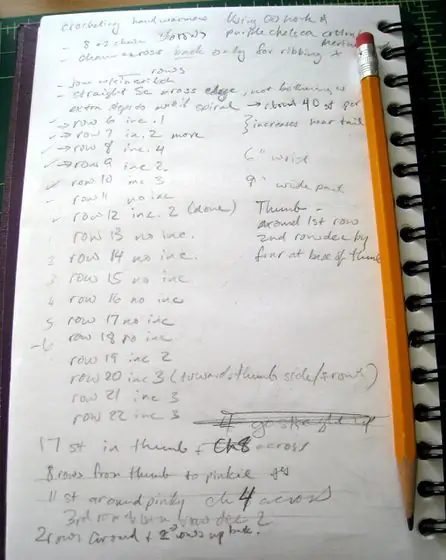 crocheting hand warmers Using OO hook &
purple chelsea
- 8 + 2 chain rows
- chain across back only for ribbing *
rows
- join
- straight sc across edge, not
extra → about 40 st per
→ row 6 inc. 1 } increases near tail
→ row 7 in. 2 more
→ row 8 inc. 4
→ row 9 inc 2. 6" wrist
row 10 inc 3 9" wide part
row 11 no inc
row 12 inc. 2 (done) Thumb -
1 row 13 no inc. around 1st row
2 row 14 no inc. 2nd row dec by
four at base of thumb
3 row 15 no inc
4 row 16 no inc
5 row 17 no inc
6 row 18 no inc
row 19 inc 2
row 20 inc 3 (towards thumb side/
row 21 inc 3
row 22 inc 3
go straight up
17 st in thumb + Ch8 across
8 rows from thumb to pinkie
11 st around pinky ch 4 across
3rd row dec 2
2 rows around + rows up